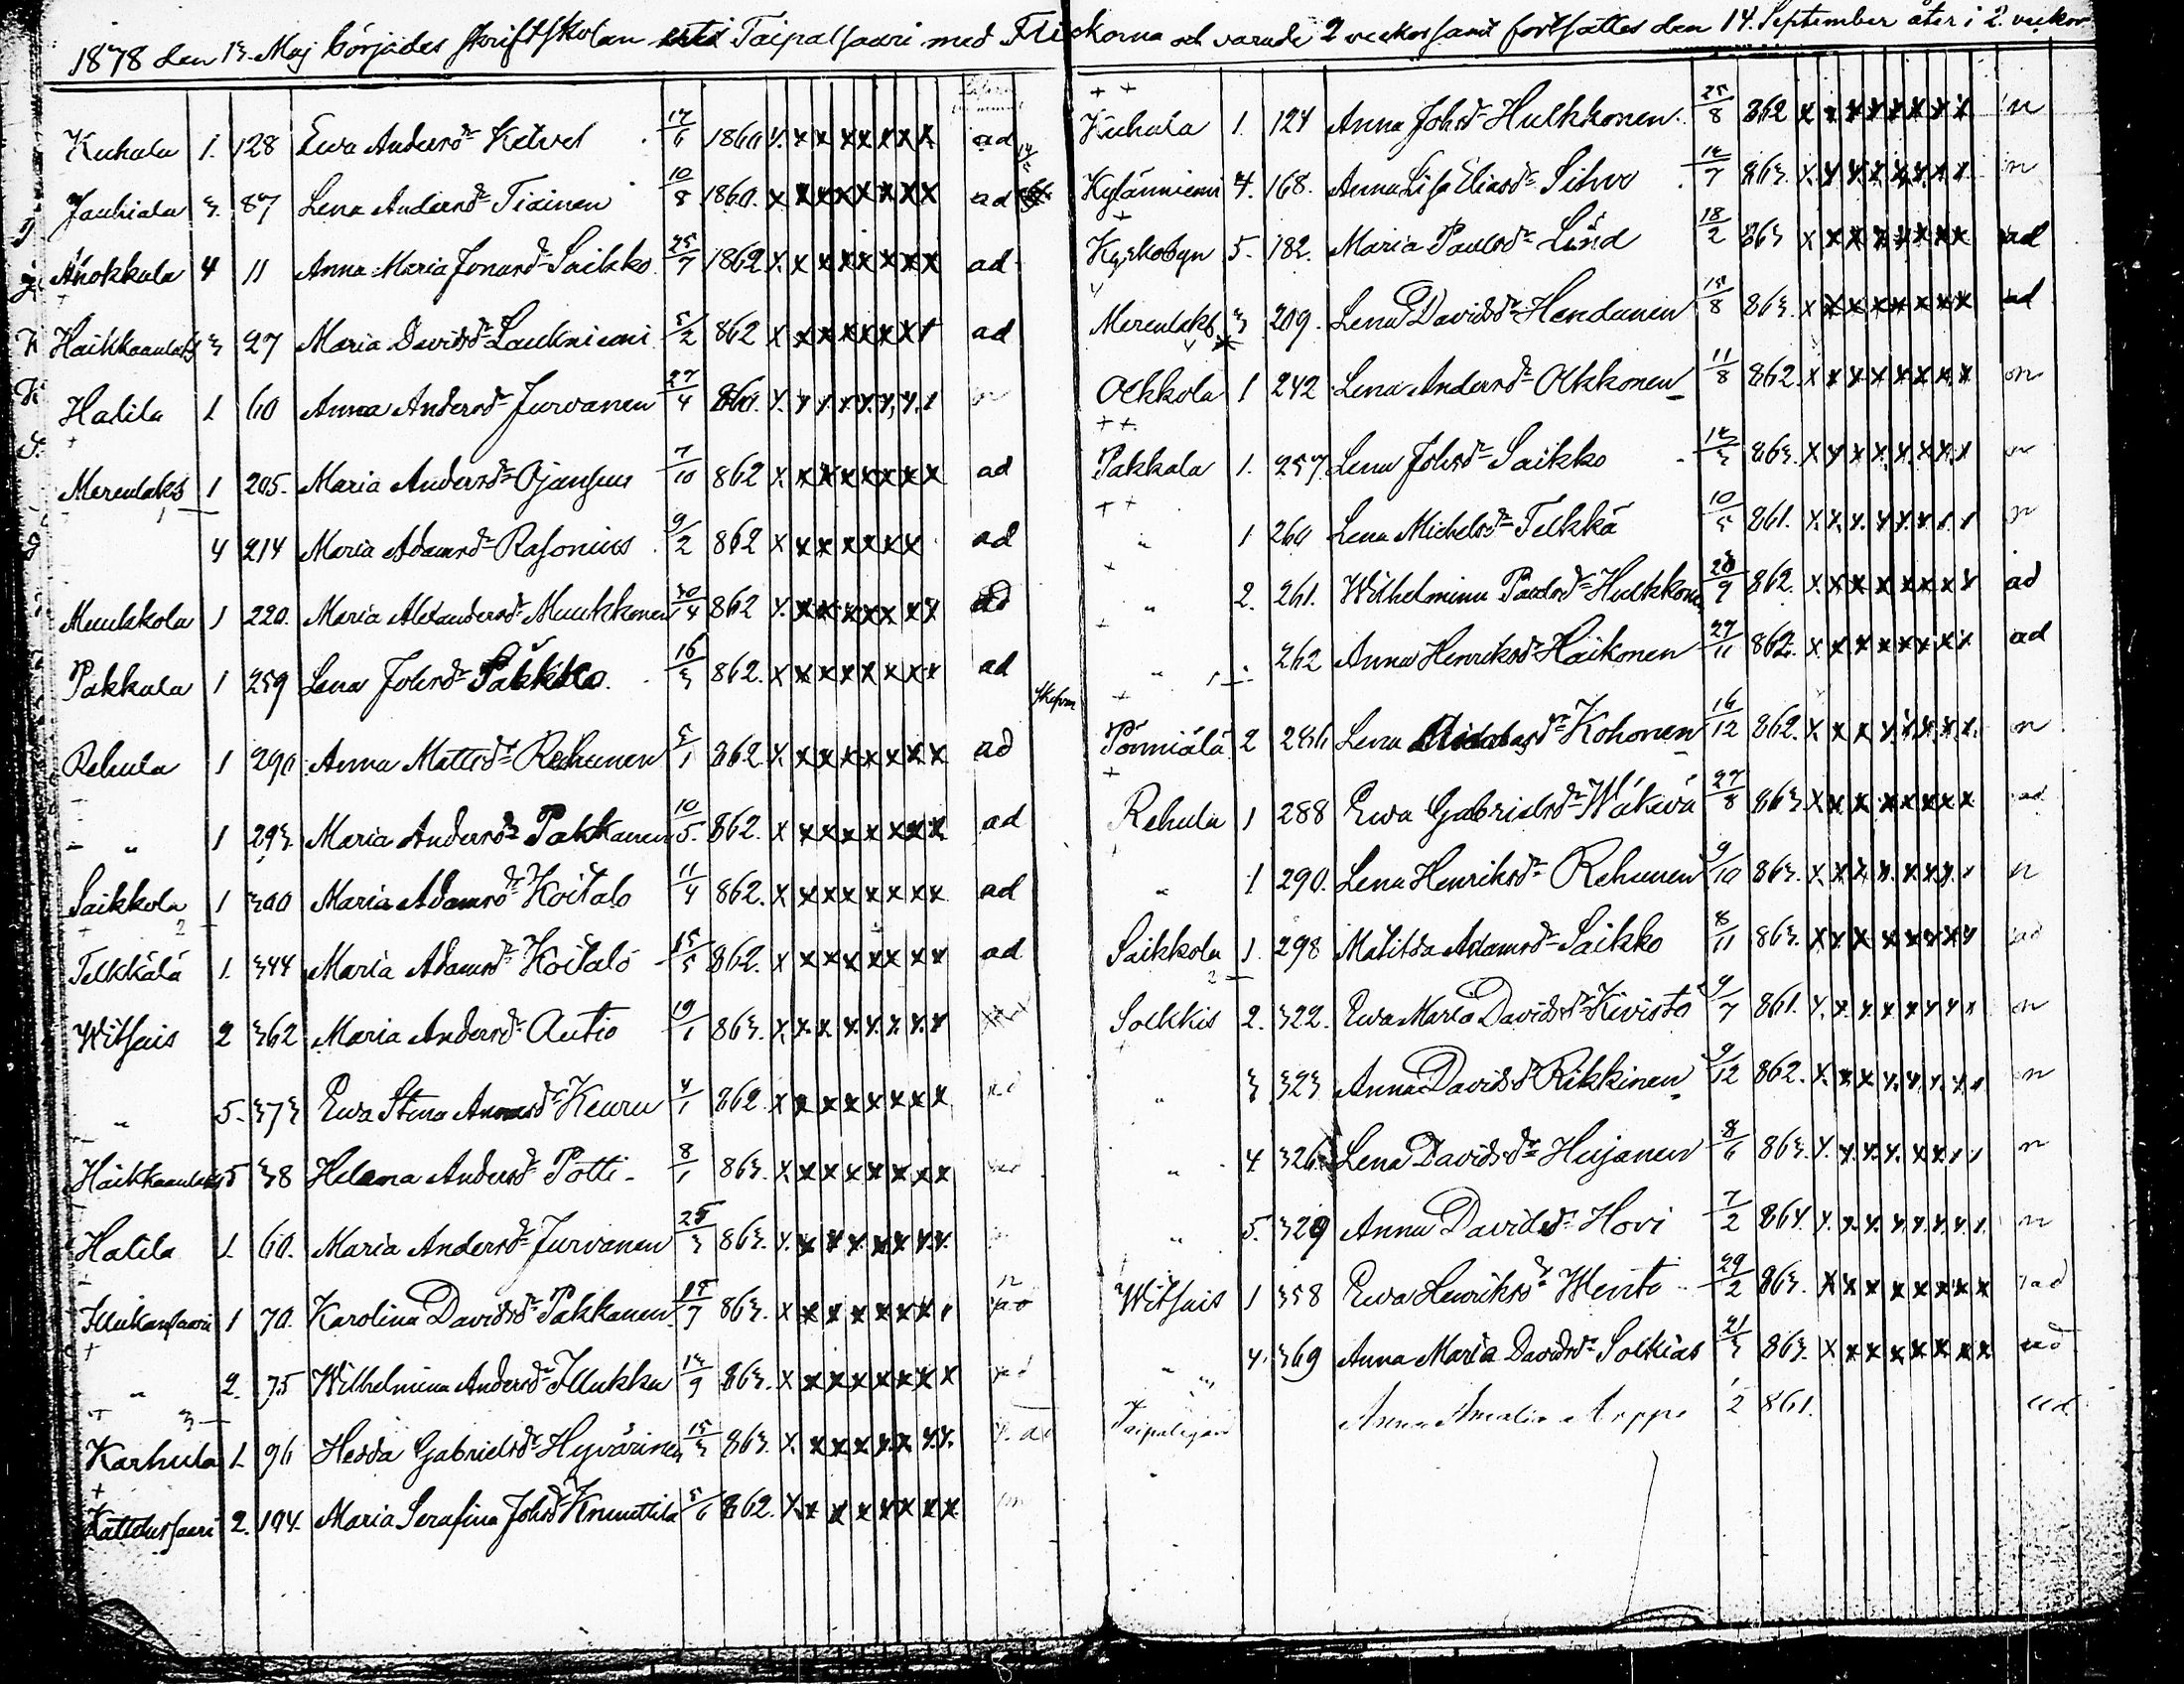 1878 den 13. Maj börjades skriftskolan i Taipalsaari med Flickorna och varade 2 veckor samt fortsattes den 14. September åter i 2. veckor
Kuhala 1. 128 Ewa Andersdr Kelvet 17/6 1860 x x x x x x x x ad
Jauhiala 3. 87 Lena Andersdr Tiainen 10/8 1860. x x x x x x x x ad
Anokkala 4 11 Anna Maria Jonasdr Saikko 25/7 1862 x x x x x x x x ad
Haikkaanlaks 3 27 Maria Davidsdr Laukniemi 5/2 862 x x x x x x x x ad
Halila 1 60 Anna Andersdr Jurvanen 27/4 860. x x x x x x x x n
Merenlaks 1 205. Maria Andersdr Ojansuu 7/10 862 x x x x x x x x ad
4 214 Maria Adamsdr Rasonius 9/2 862 x x x x x x x ad
Muukkola 1 220. Maria Alexandersdr Muukkonen 30/4 862 x x x x x x x x ad
Pakkala 1 259 Lena Johsdr 16/3 862. x x x x x x x x ad
Rehula 1 290 Anna Mattsdr Rehunen 5/1 862 x x x x x x x x ad
" 1 293 Maria Andersdr Pakkanen 10/5 862. x x x x x x x x ad
Saikkola 1 300 Maria Adamsdr Koitalo 11/4 862. x x x x x x x x ad
Telkkälä 1. 344 Maria Adamsdr Koitalo 15/5 862. x x x x x x x x ad
Witsais 2 362 Maria Andersdr Autio 19/1 863. x x x x x x x x
" 5. 373 Ewa Stina Keuru 4/1 862. x x x x x x x x ad
Haikkaanlaks 5 38 Helena Andersdr Potti 8/1 863. x x x x x x x x
Halila 1 60. Maria Andersdr Jurvanen 25/3 863. x x x x x x x x
Illukansaari 1 70. Karolina Davidsdr Pakkanen 15/7 863. x x x x x x x x
" 2. 75 Wilhelmina Andersdr Illukka 13/9 863. x x x x x x x x ad
Karhula 1 96 Hedda Gabrielsdr Hyvärinen 15/3 863. x x x x x x x x
Kattelussaari 2. 104. Maria Serafina Johsdr Knuuttila 5/6 862. x x x x x x x x
Kuhala 1. 124 Anna Johsdr Hulkkonen 25/8 862 x x x x x x x x n
Kylänniemi 4. 168. Anna Lisa Eliasdr Sihvo 14/7 863. x x x x x x x x n
Kyrkobyn 5. 182. Maria Paulsdr Lind 18/2 863 x x x x x x x x ad
Merenlaks 3 209. Lena Davidsdr Handunen 15/8 863. x x x x x x x x ad
Olkkola 1 242 Lena Andersdr Olkkonen 11/8 862. x x x x x x x x n
Pakkala 1. 257 Lena Johsdr Saikko 14/3 863. x x x x x x x x n
" 1 260 Lena Michelsdr Telkkä 10/5 861. x x x x x x x x n
" 2. 261. Wilhelmina Paulsdr Hulkkonen 28/9 862. x x x x x x x x ad
" 262 Anna Henriksdr Häikonen 27/11 862. x x x x x x x x ad
Pönniälä 2 286 Lena Kohonen 16/12 862. x x x x x x x x n
Rehula 1 288 Ewa Gabrielsdr Wäkevä 27/8 863 x x x x x x x x ad
" 1 290. Lena Henriksdr Rehunen 9/10 863. x x x x x x x x n
Saikkola 1. 298 Matilda Adamsdr Saikko 8/11 863. x x x x x x x x ad
Solkkis 2. 322. Ewa Maria Davidsdr Kivistö 9/7 861. x x x x x x x x n
" 3 323 Anna Davidsdr Rikkinen 9/12 862. x x x x x x x x n
" 4 326 Lena Davidsdr Hujanen 8/6 863. x x x x x x x x n
" 5. 329 Anna Davidsdr Hovi 7/2 864. x x x x x x x x n
Witsais 1 358 Ewa Henriksdr Wento 29/2 863. x x x x x x x x ad
" 4. 369 Anna Maria Davidsdr Solkias 21/3 863. x x x x x x x x ad
Anna Amalia Arppe 2 861. ad